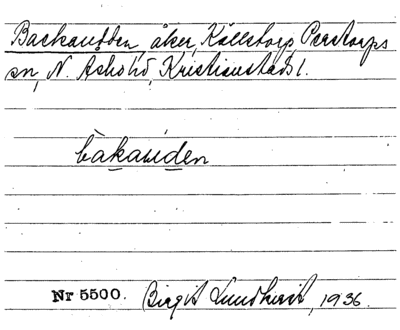 Backaudden, åker, Källstorp, Perstorps
sn, N. Åsbo hd, Kristianstads l.
bàkau̇den
Nr 5500. Birgit Lundkvist, 1936.